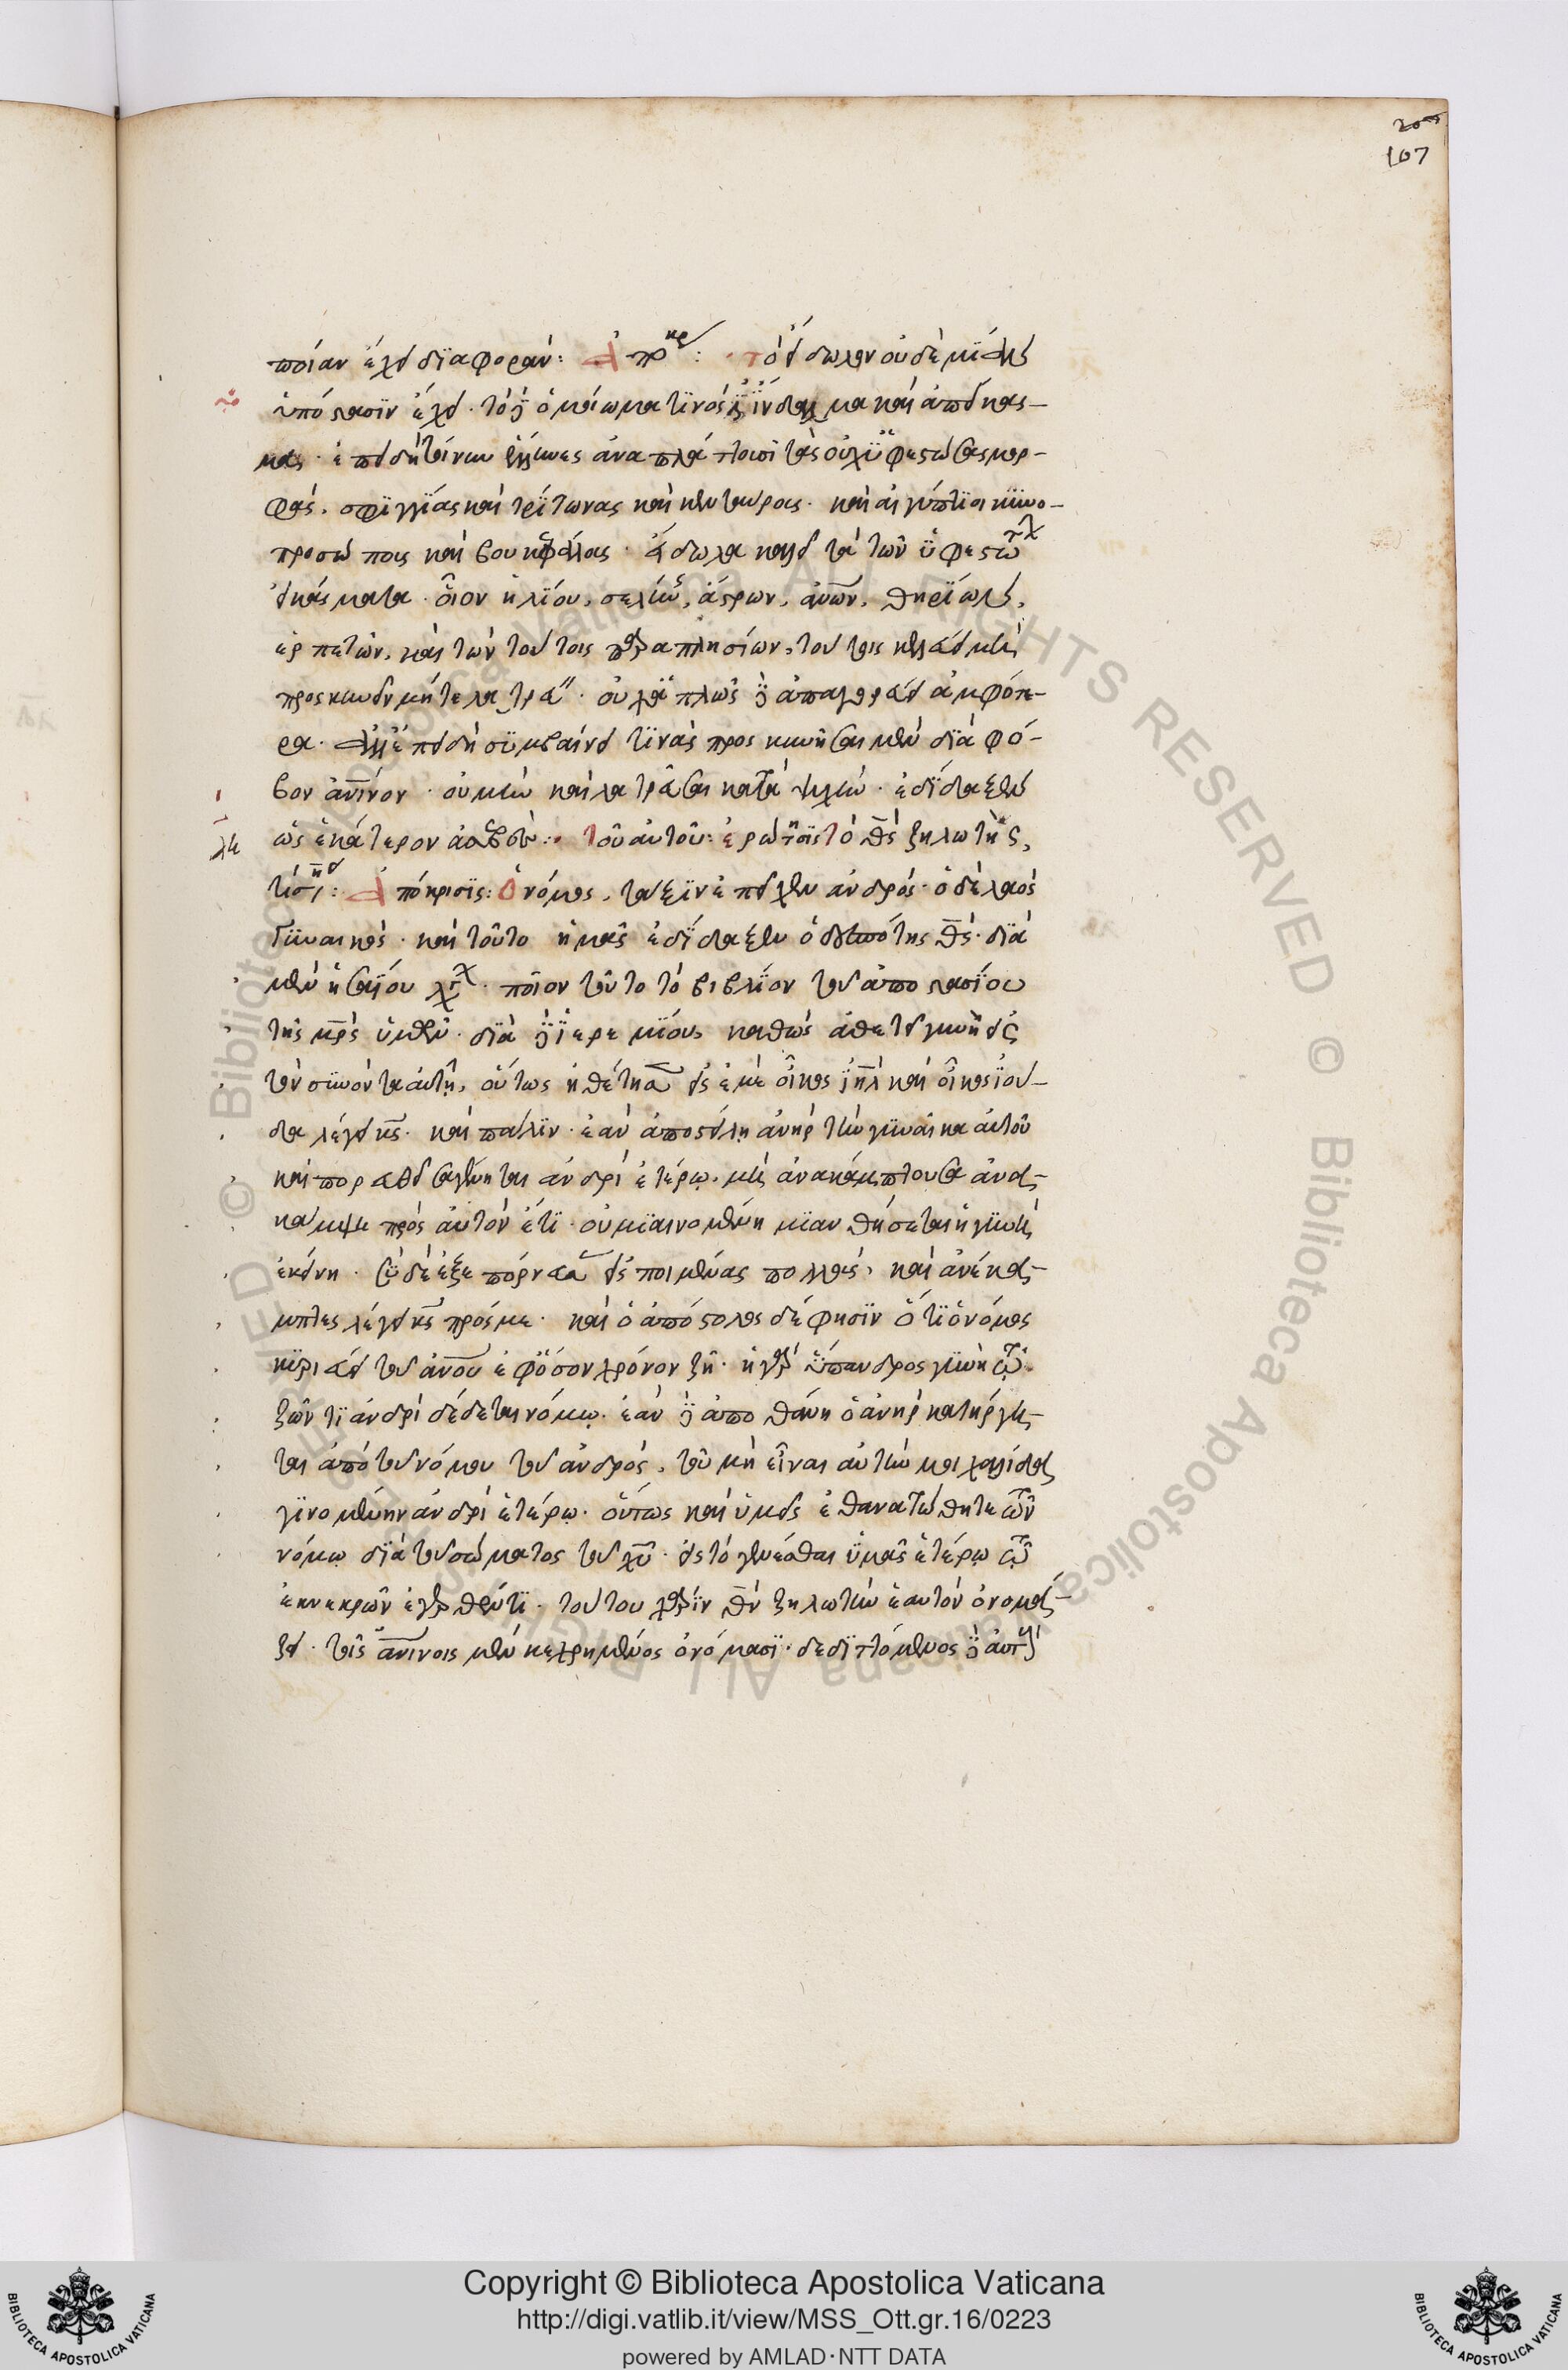 107
ποίαν ἔχει διαφοράν: Ἀπόκρ: τὸ εἴδωλον οὐδεμίαν
ὑπόστασιν ἔχει. τὸ δὲ ὁμοίωμα τινός ἐστιν ἴνδαλμα καὶ ἀπείκασ-
μα. ἐπειδὴ τοίνυν ἕλληνες ἀναπλάττουσι τὰς οὐχ ὑφεστώσας μορ-
φάς. σφίγγας καὶ τρίτωνας καὶ κενταύρους. καὶ αἰγύπτιοι κυνο-
προσώπους καὶ βουκεφάλους. εἴδωλα καλεῖ τὰ τῶν οὐχ ὑφεστώτων
εἰκάσματα. οἷον ἡλίου, σελήνης, ἄστρων, ἀνων, θηρίων,
ἑρπετῶν, καὶ τῶν τούτοις παραπλησίων, τούτοις κελεύει μὴ
προσκυνεῖν μήτε λατρεύειν. οὐχ ἁπλῶς δὲ ἀπαγορεύει ἀμφότε-
ρα. ἀλλ' ἐπειδὴ συμβαίνει τινὰς προσκυνῆσαι μὲν διὰ φό-
βον ἀνινον. οὐ μὴν καὶ λατρεῦσαι κατὰ ψυχήν. ἐδίδαξεν
λη ὡς ἑκάτερον ἀσεβές: τοῦ αὐτοῦ: ἐρώτησις τὸ θς ζηλωτὴς,
τί ἐστι: Ἀπόκρισις: Ὁ νόμος, τάξιν ἐπεῖχεν ἀνδρός. ὁ δὲ λαὸς
γυναικός. καὶ τοῦτο ἡμᾶς ἐδίδαξεν ὁ δεσπότης θς. διὰ
μὲν ἡσαΐου λέγων. ποῖον τοῦτο τὸ βιβλίον τοῦ ἀποστασίου
τῆς μρς ὑμῶν. διὰ δὲ ἱερεμίου, καθὼς ἀθετεῖ γυνὴ εἰς
τὸν συνόντα αὐτῇ, οὕτως ἠθέτησεν εἰς ἐμὲ οἶκος ιηλ καὶ οἶκος ἰού-
δα λέγει κς. καὶ πάλιν. ἐὰν ἀποστείλῃ ἀνὴρ τὴν γυναῖκα αὐτοῦ
καὶ πορευθεῖσα γένηται ἀνδρὶ ἑτέρῳ. μὴ ἀνακάμπτουσα ἀνα-
κάμψει πρὸς αὐτὸν ἔτι. οὐ μιαινομένη μιανθήσεται ἡ γυνὴ
ἐκείνη. σὺ δὲ ἐξεπόρνευσας εἰς ποιμένας πολλούς, καὶ ἀνέκα-
μπτες λέγει κς πρός με. καὶ ὁ ἀπόστολος δέ φησιν ὅτι ὁ νόμος
κυριεύει τοῦ ἀνου ἐφ' ὅσον χρόνον ζῇ. ἡ γὰρ ὕπανδρος γυνὴ τῷ
ζῶντι ἀνδρὶ δέδεται νόμῳ. ἐὰν δὲ ἀποθάνῃ ὁ ἀνὴρ κατήργη-
ται ἀπὸ τοῦ νόμου τοῦ ἀνδρός, τοῦ μὴ εἶναι αὐτὴν μοιχαλίδα
γινομένην ἀνδρὶ ἑτέρῳ. οὕτως καὶ ὑμεῖς ἐθανατώθητε τῷ
νόμῳ διὰ τοῦ σώματος τοῦ χυ. εἰς τὸ γενέσθαι ὑμᾶς ἑτέρῳ τῷ
ἐκ νεκρῶν ἐγερθέντι. τούτου χάριν θν ζηλωτὴν ἑαυτὸν ὀνομά-
ζει. τοῖς ἀνινοις μὲν κεχρημένος ὀνόμασι. δεδιττόμενος δὲ αὐτοὺς
Copyright © Biblioteca Apostolica Vaticana
http://digi.vatlib.it/view/MSS_Ott.gr.16/0223
powered by AMLAD·NTT DATA